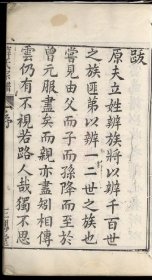 跋
原夫立姓辨族將以辨千百世
之族匪第以辨一二世之族也
嘗見由父而子而孫降而至於
曾元服盡矣而親亦盡矧相傳
雲仍有不視若路人哉獨不思
序